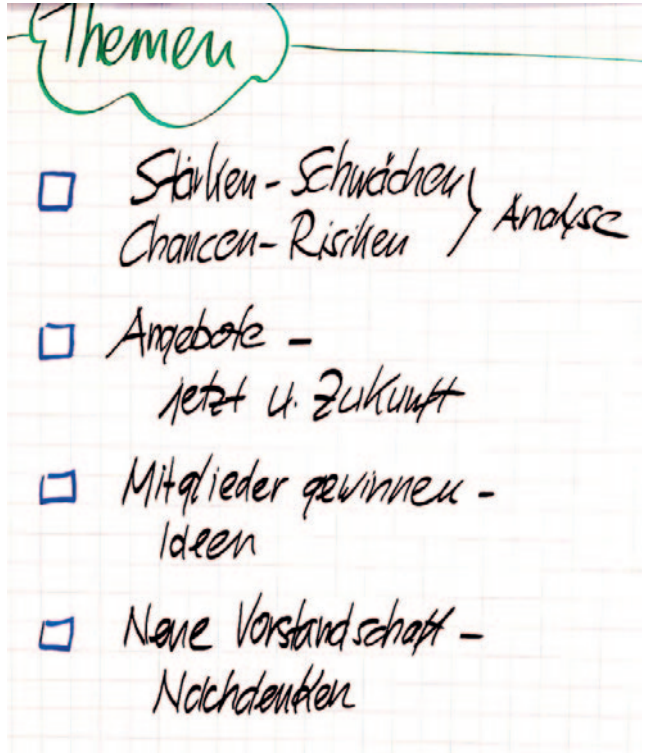 Themen
Stärken - Schwächen
Chancen - Risiken } Analyse
Angebote -
jetzt u. Zukunft
Mitglieder gewinnen -
Ideen
Neue Vorstandschaft -
Nachdenken